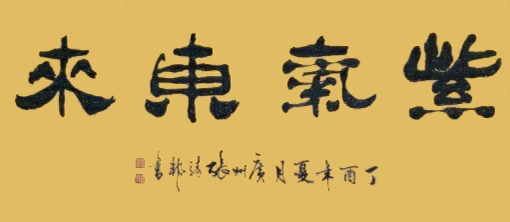 紫氣東來
丁酉年夏月廣州張清龍書